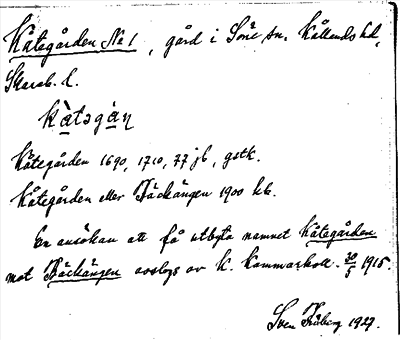 Kåtegården No 1, gård i Söne sn. Kållands hd,
Skarab. l.
kàtəgàn
Kåtegården 1690, 1710, 77 jb, gstk.
Kåtegården eller Bäckängen 1900 kb.
En ansökan att få utbyta namnet Kåtegården
mot Bäckängen avslogs av K. Kammarkoll. 30/5 1915.
Sven 1927.